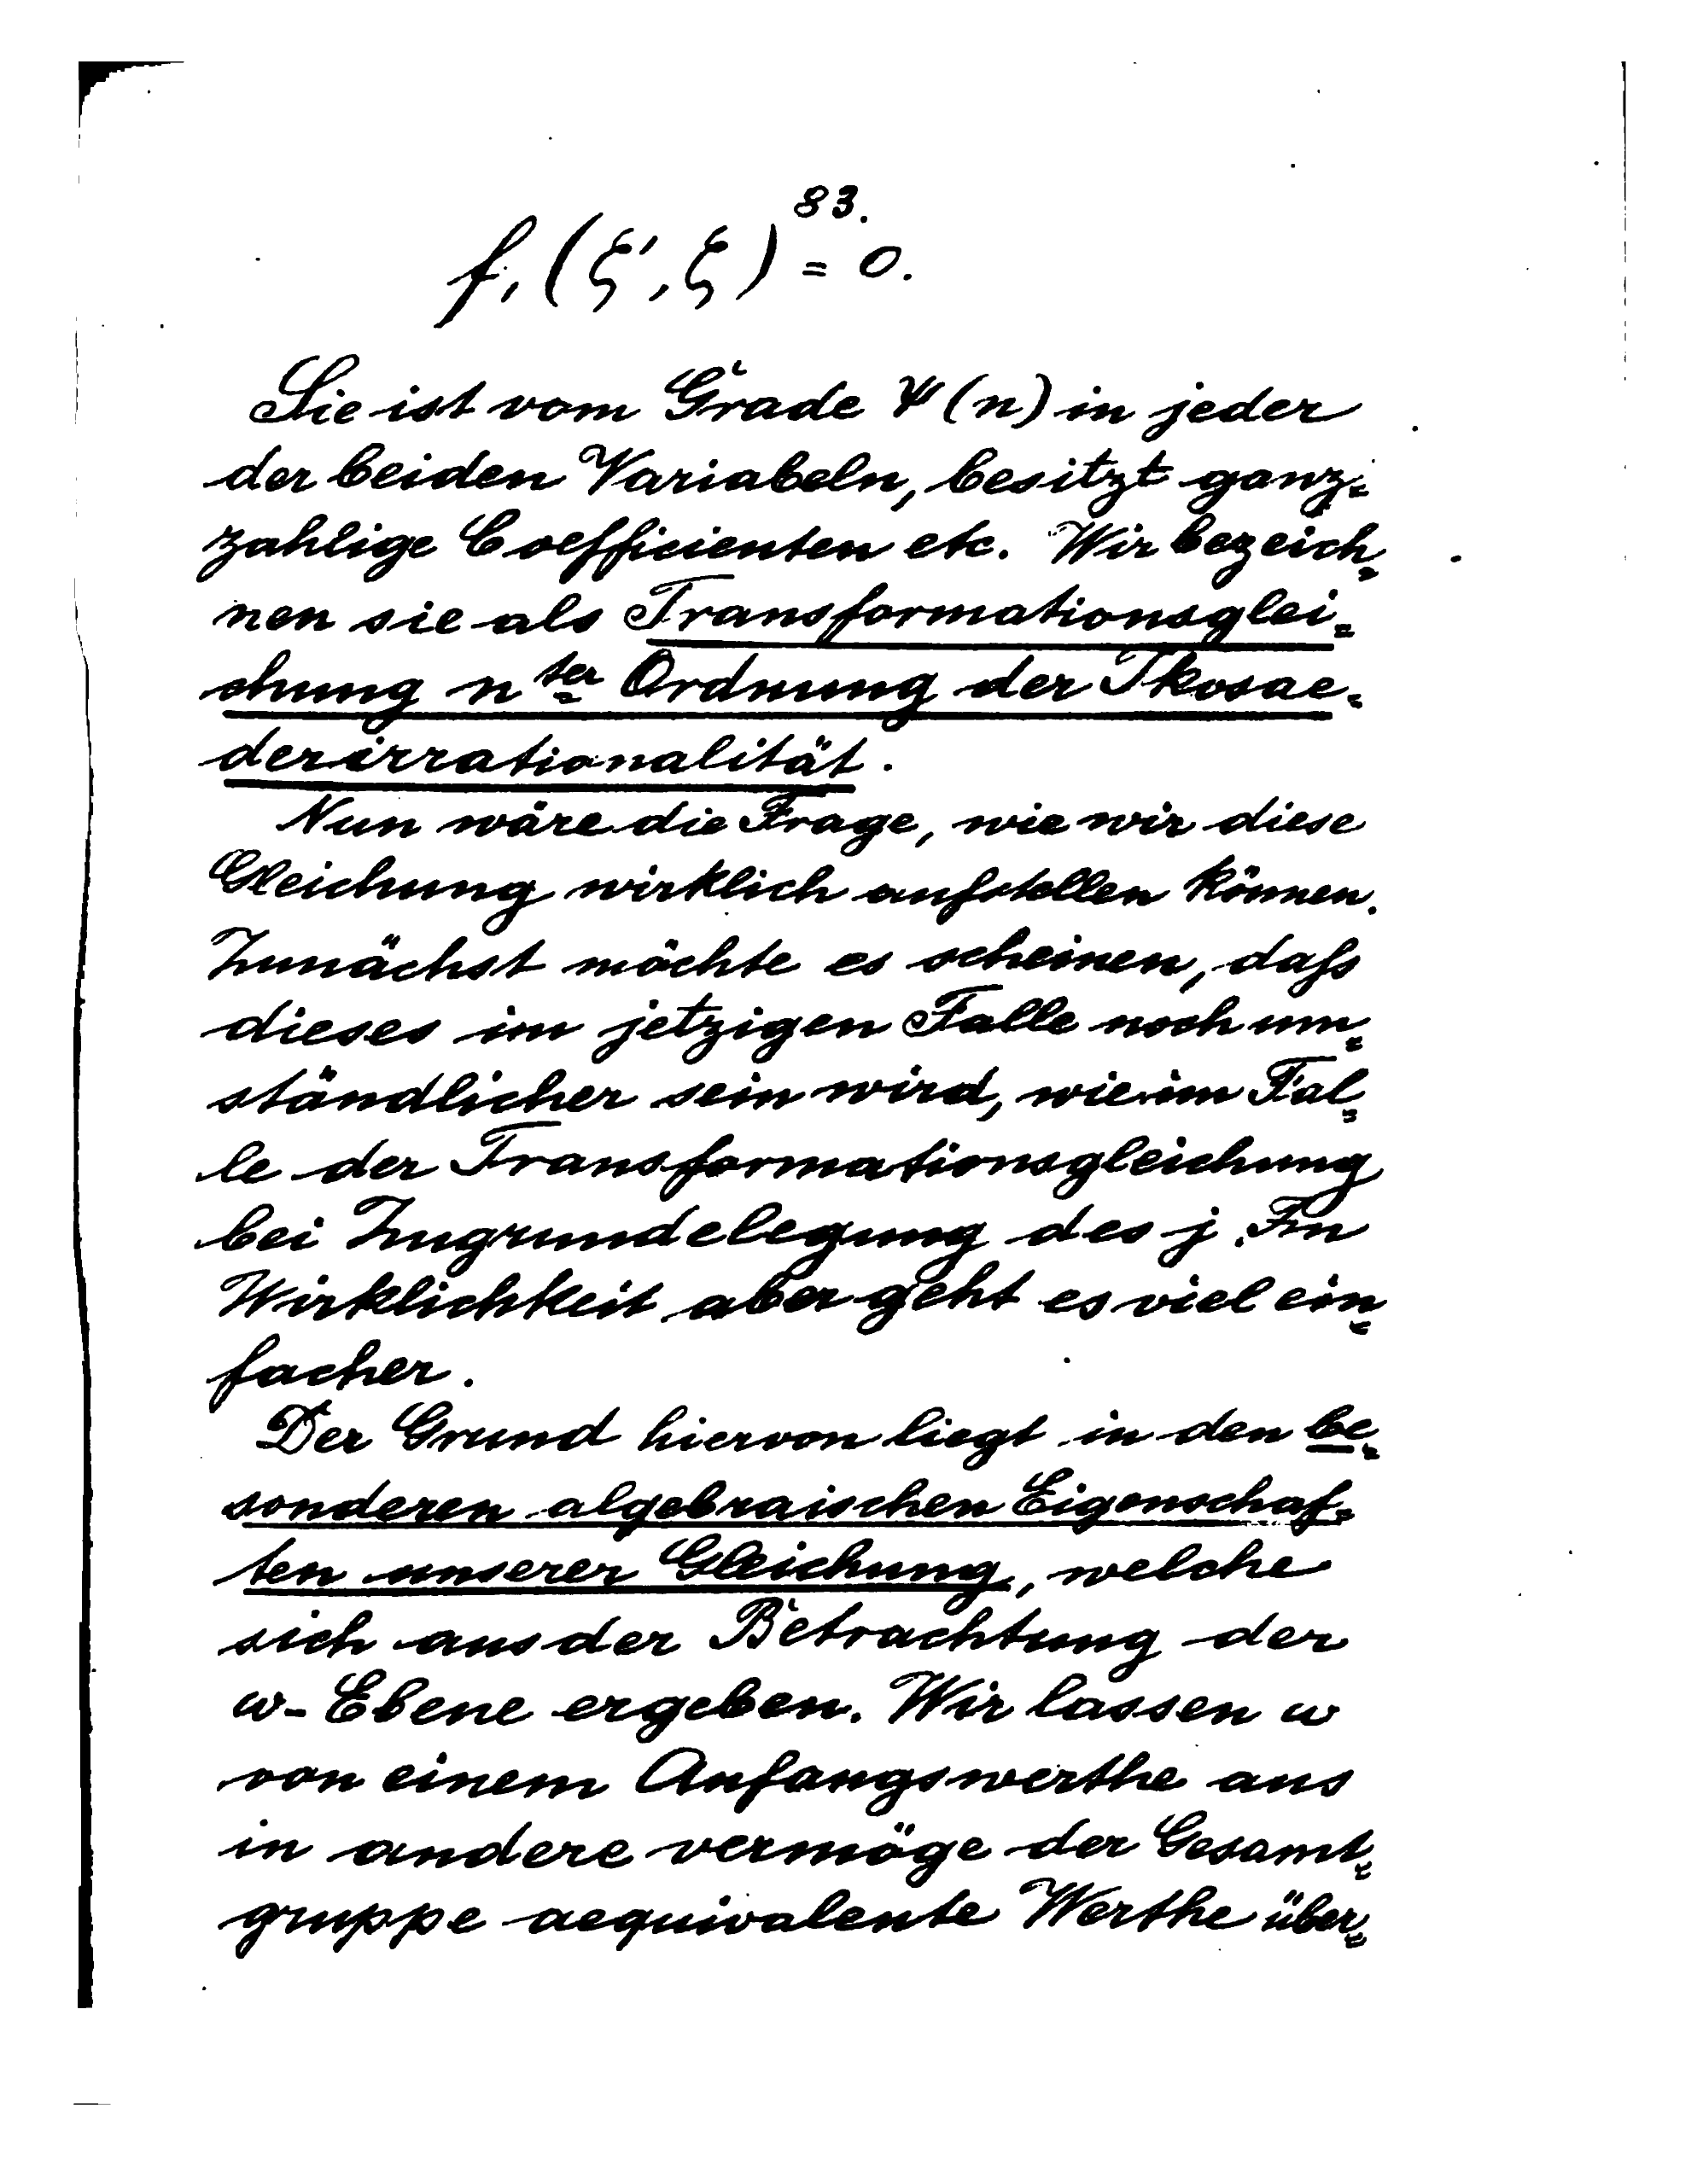 83.
f₁(ξ', ξ) = 0.
Sie ist vom Grade ψ(n) in jeder
der beiden Variabeln, besitzt ganz=
zahlige Coefficienten etc. Wir bezeich=
nen sie als Transformationsglei=
chung nter Ordnung der Ikosae=
derirrationalität.
Nun wäre die Frage, wie wir diese
Gleichung wirklich aufstellen können.
Zunächst möchte es scheinen, dafs
dieses im jetzigen Falle noch um=
ständlicher sein wird, wie im Fal=
le der Transformationsgleichung
bei Zugrundelegung des j. In
Wirklichkeit aber geht es viel ein=
facher.
Der Grund hiervon liegt in den be=
sonderen algebraischen Eigenschaf=
ten unserer Gleichung, welche
sich aus der Betrachtung der
ω-Ebene ergeben. Wir lassen ω
von einem Anfangswerthe aus
in andere vermöge der Gesamt=
gruppe aequivalente Werthe über=